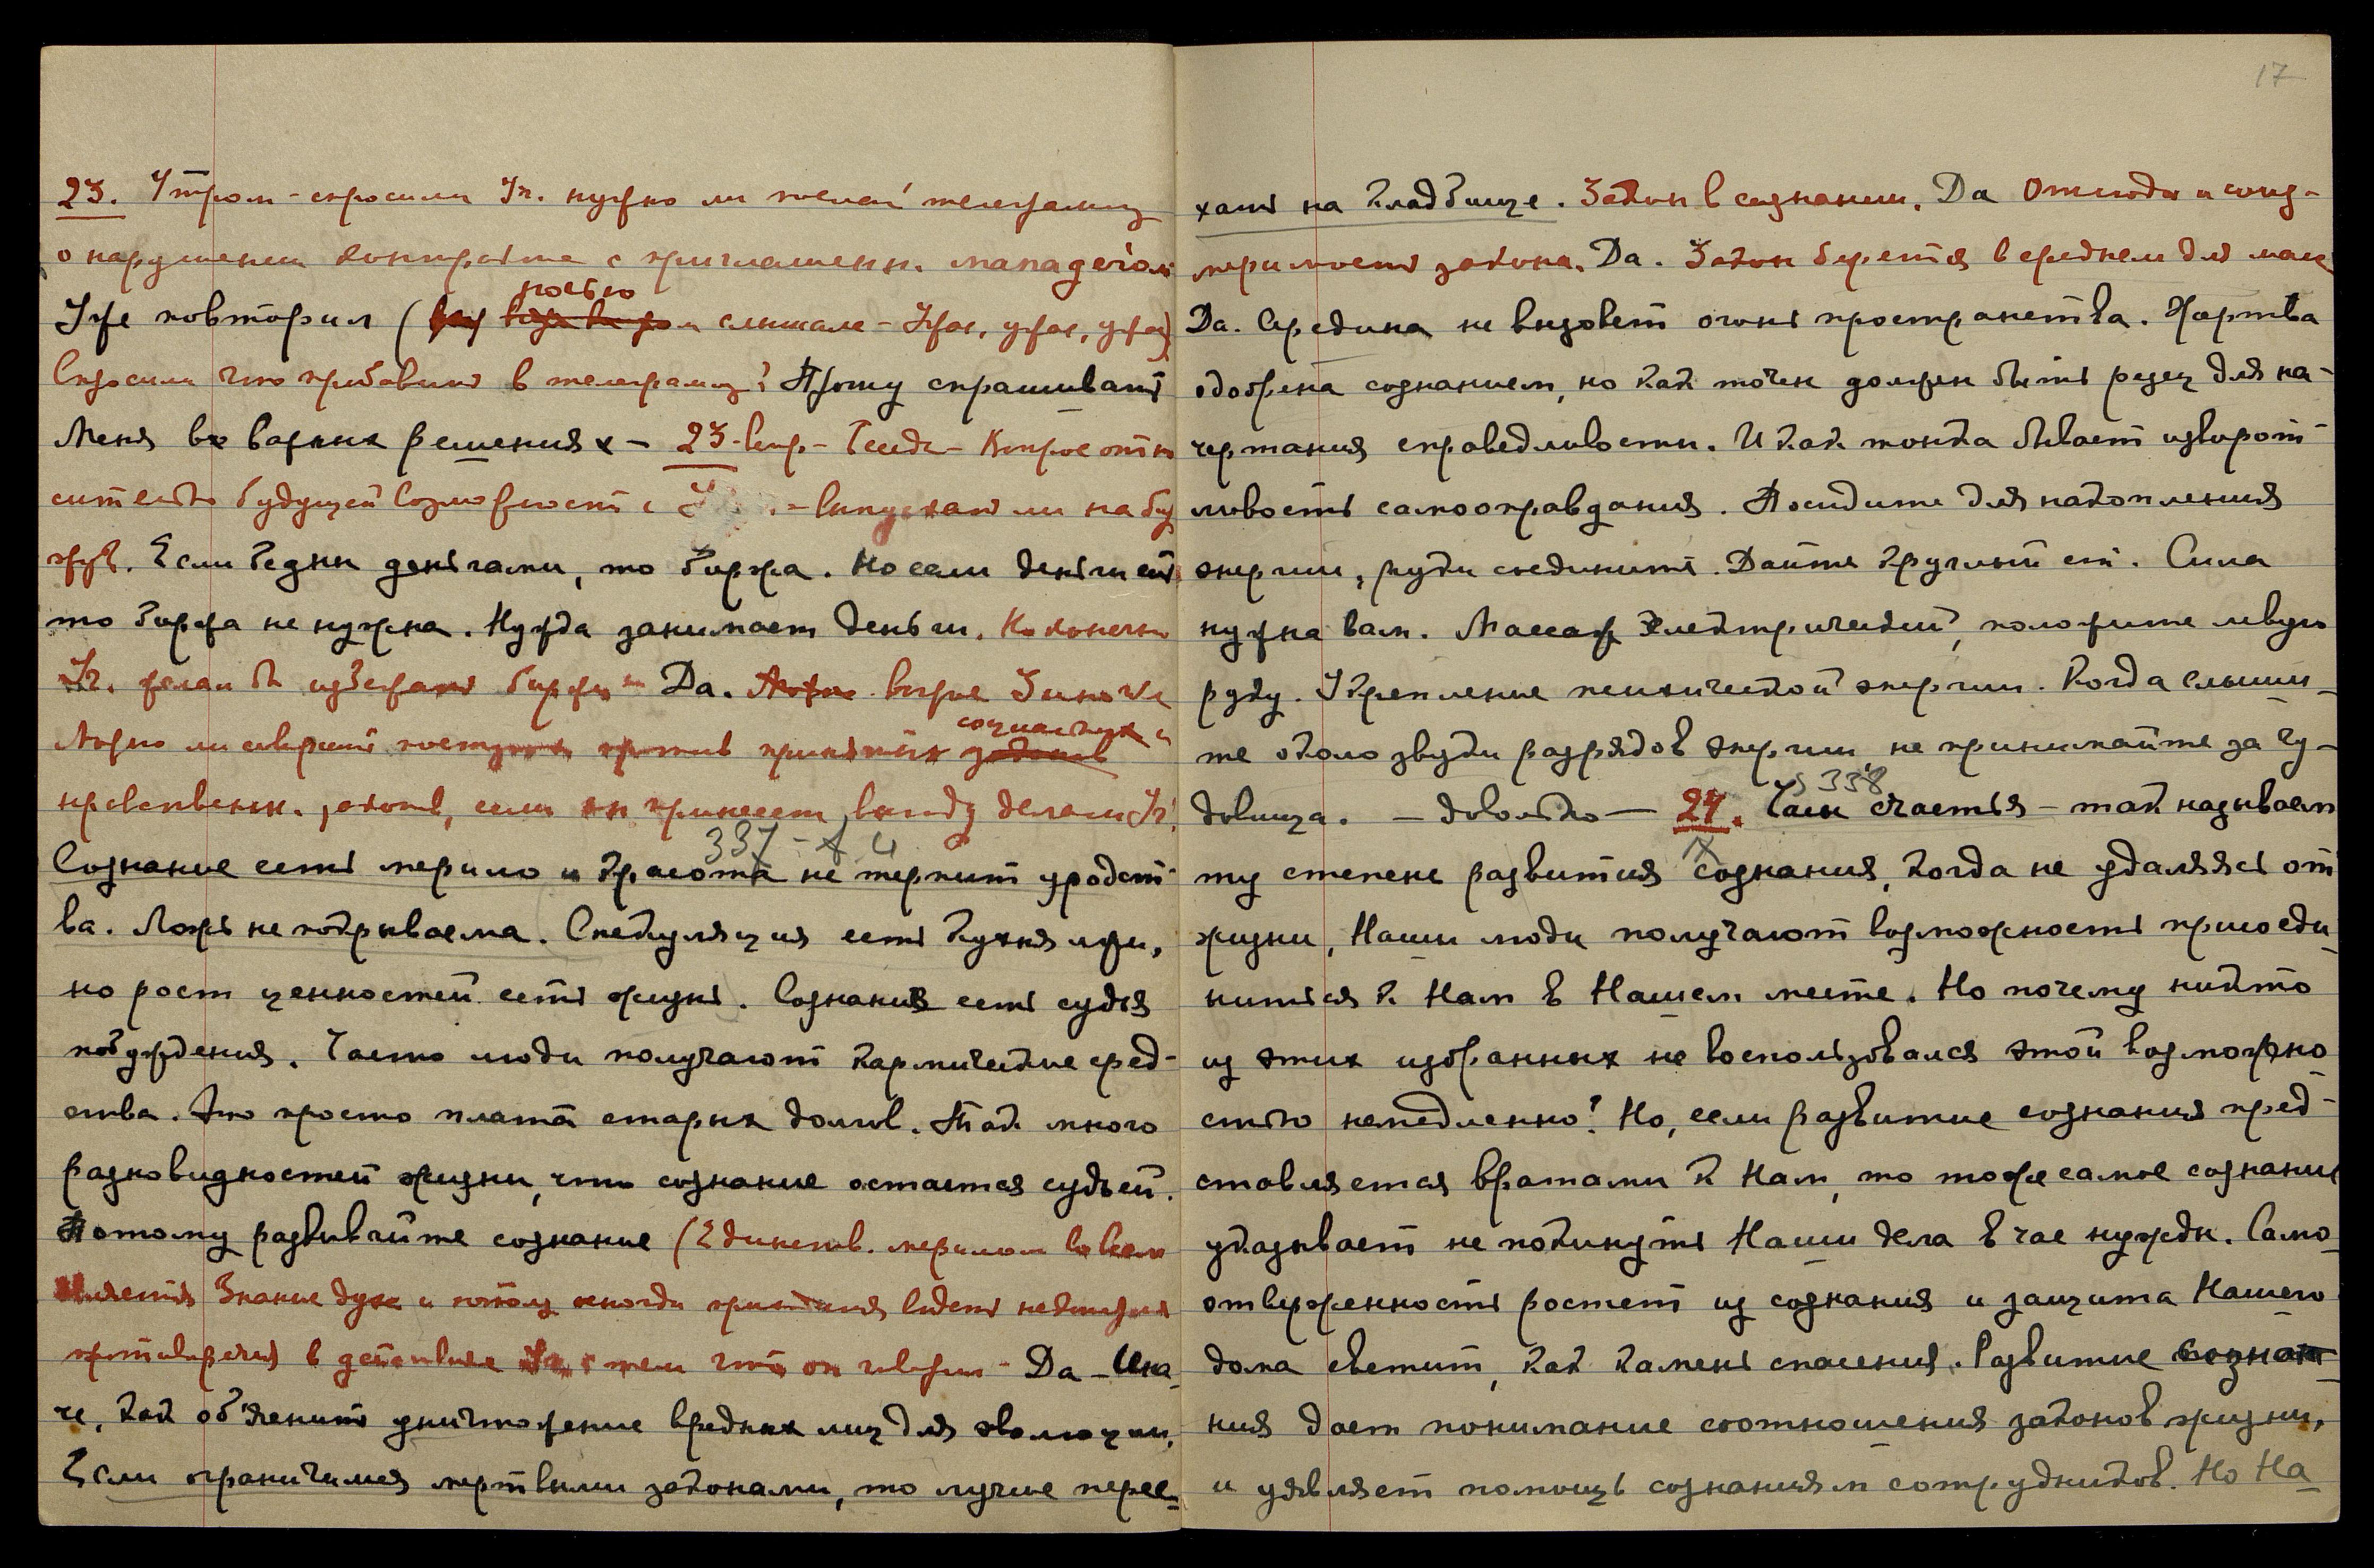 23. Утром - спросили Уч. нужно ли телеграмму
о нарушении контракта с приглашенн. manager'ом
ночью
Уже повторил ( слышала - Ужас, ужас, ужас)
Спросили что прибавить в телеграмму? Прошу спрашивать
Меня в важных решениях - 23 - веч. - Беседа - Вопрос относ
сительно будущей возможности с - выпускать ли на бир
жу. Если бедны деньгами, то биржа. Но если деньги есть
то биржа не нужна. Нужда занимает деньги. Но конечно
Уч. желал бы избежать биржи - Да. вопрос
социальных и
Можно ли совершить поступок против принятых
нравственн. законов, если он принесет выгоду делам Уч.
337 -
Сознание есть мерило и красота не терпит уродст-
ва. Ложь не покрываема. Спекуляция есть кухня лжи,
но рост ценностей есть жизнь. Сознания есть судья
побуждения. Часто люди получают кармические сред-
ства. Это просто плата старых долгов. Так много
разновидностей жизни, что сознание остается судьей.
Потому развивайте сознание (Единств. мерилом во всем
является Знание духа и потому иногда приходится видеть
противоречия в действиях с тем что он говорил - Да - Ина-
че, как об'яснить уничтожение вредных лиц для эволюции.
Если ограничимся мертвыми законами, то лучше перее-
17
хать на кладбище. Закон в сознании. Да Отсюда и соиз-
меримость закона. Да. Закон берется в среднем для масс
Да. Середина не вызовет огонь пространства. Жертва
одобрена сознанием, но как точен должен быть резец для на-
чертания справедливости. И как тонка бывает изворот-
ливость самооправдания. Посидите для накопления
энергии, руки соедините. Дайте круглый стол. Сила
нужна вам. Массаж Электрический, положите левую
руку. Укрепление психической энергии. Когда слыши-
те около звуки разрядов энергии, не принимайте за чу-
§ 338
довища. - довольно - 24. Чаша счастья - так называем
ту степень развития сознания, когда не удаляясь от
жизни, Наши люди получают возможность присоеди-
ниться к Нам в Нашем месте. Но почему никто
из этих избранных не воспользовался этой возможно
стью немедленно? Но, если развитие сознания пред-
ставляется вратами к Нам, то тоже самое сознание
указывает не покинуть Наши дела в час нужды. Само-
отверженность ростет из сознания и защита Нашего
дома светит, как камень спасения. Развитие созна-
ния дает понимание соотношения законов жизни,
и уявляет помощь сознаниям сотрудников. Но На